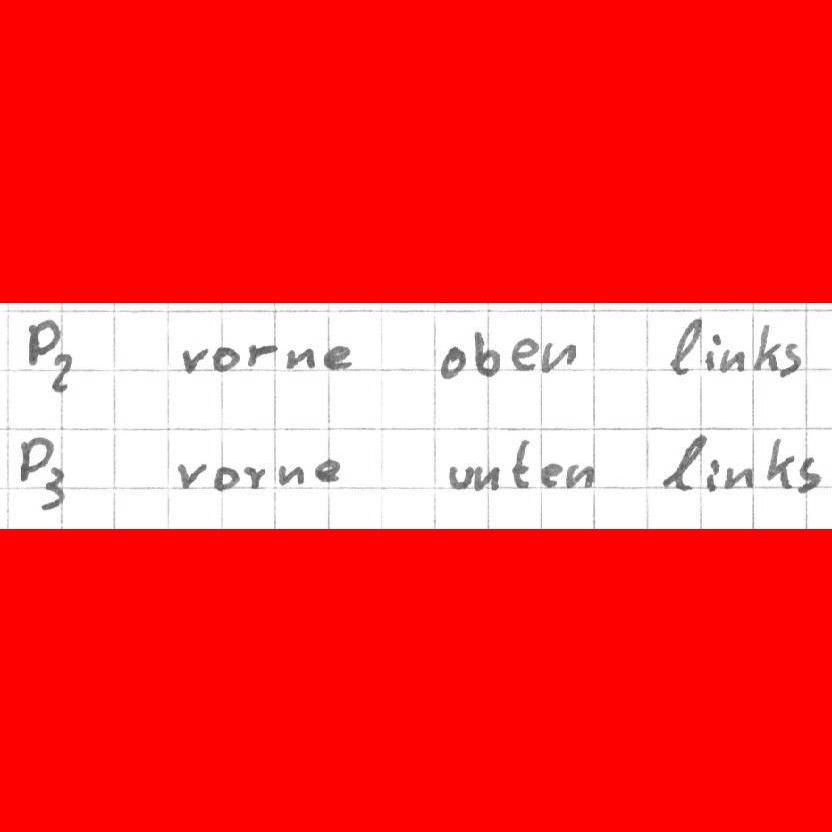 P₂ vorne oben links
P₃ vorne unten links